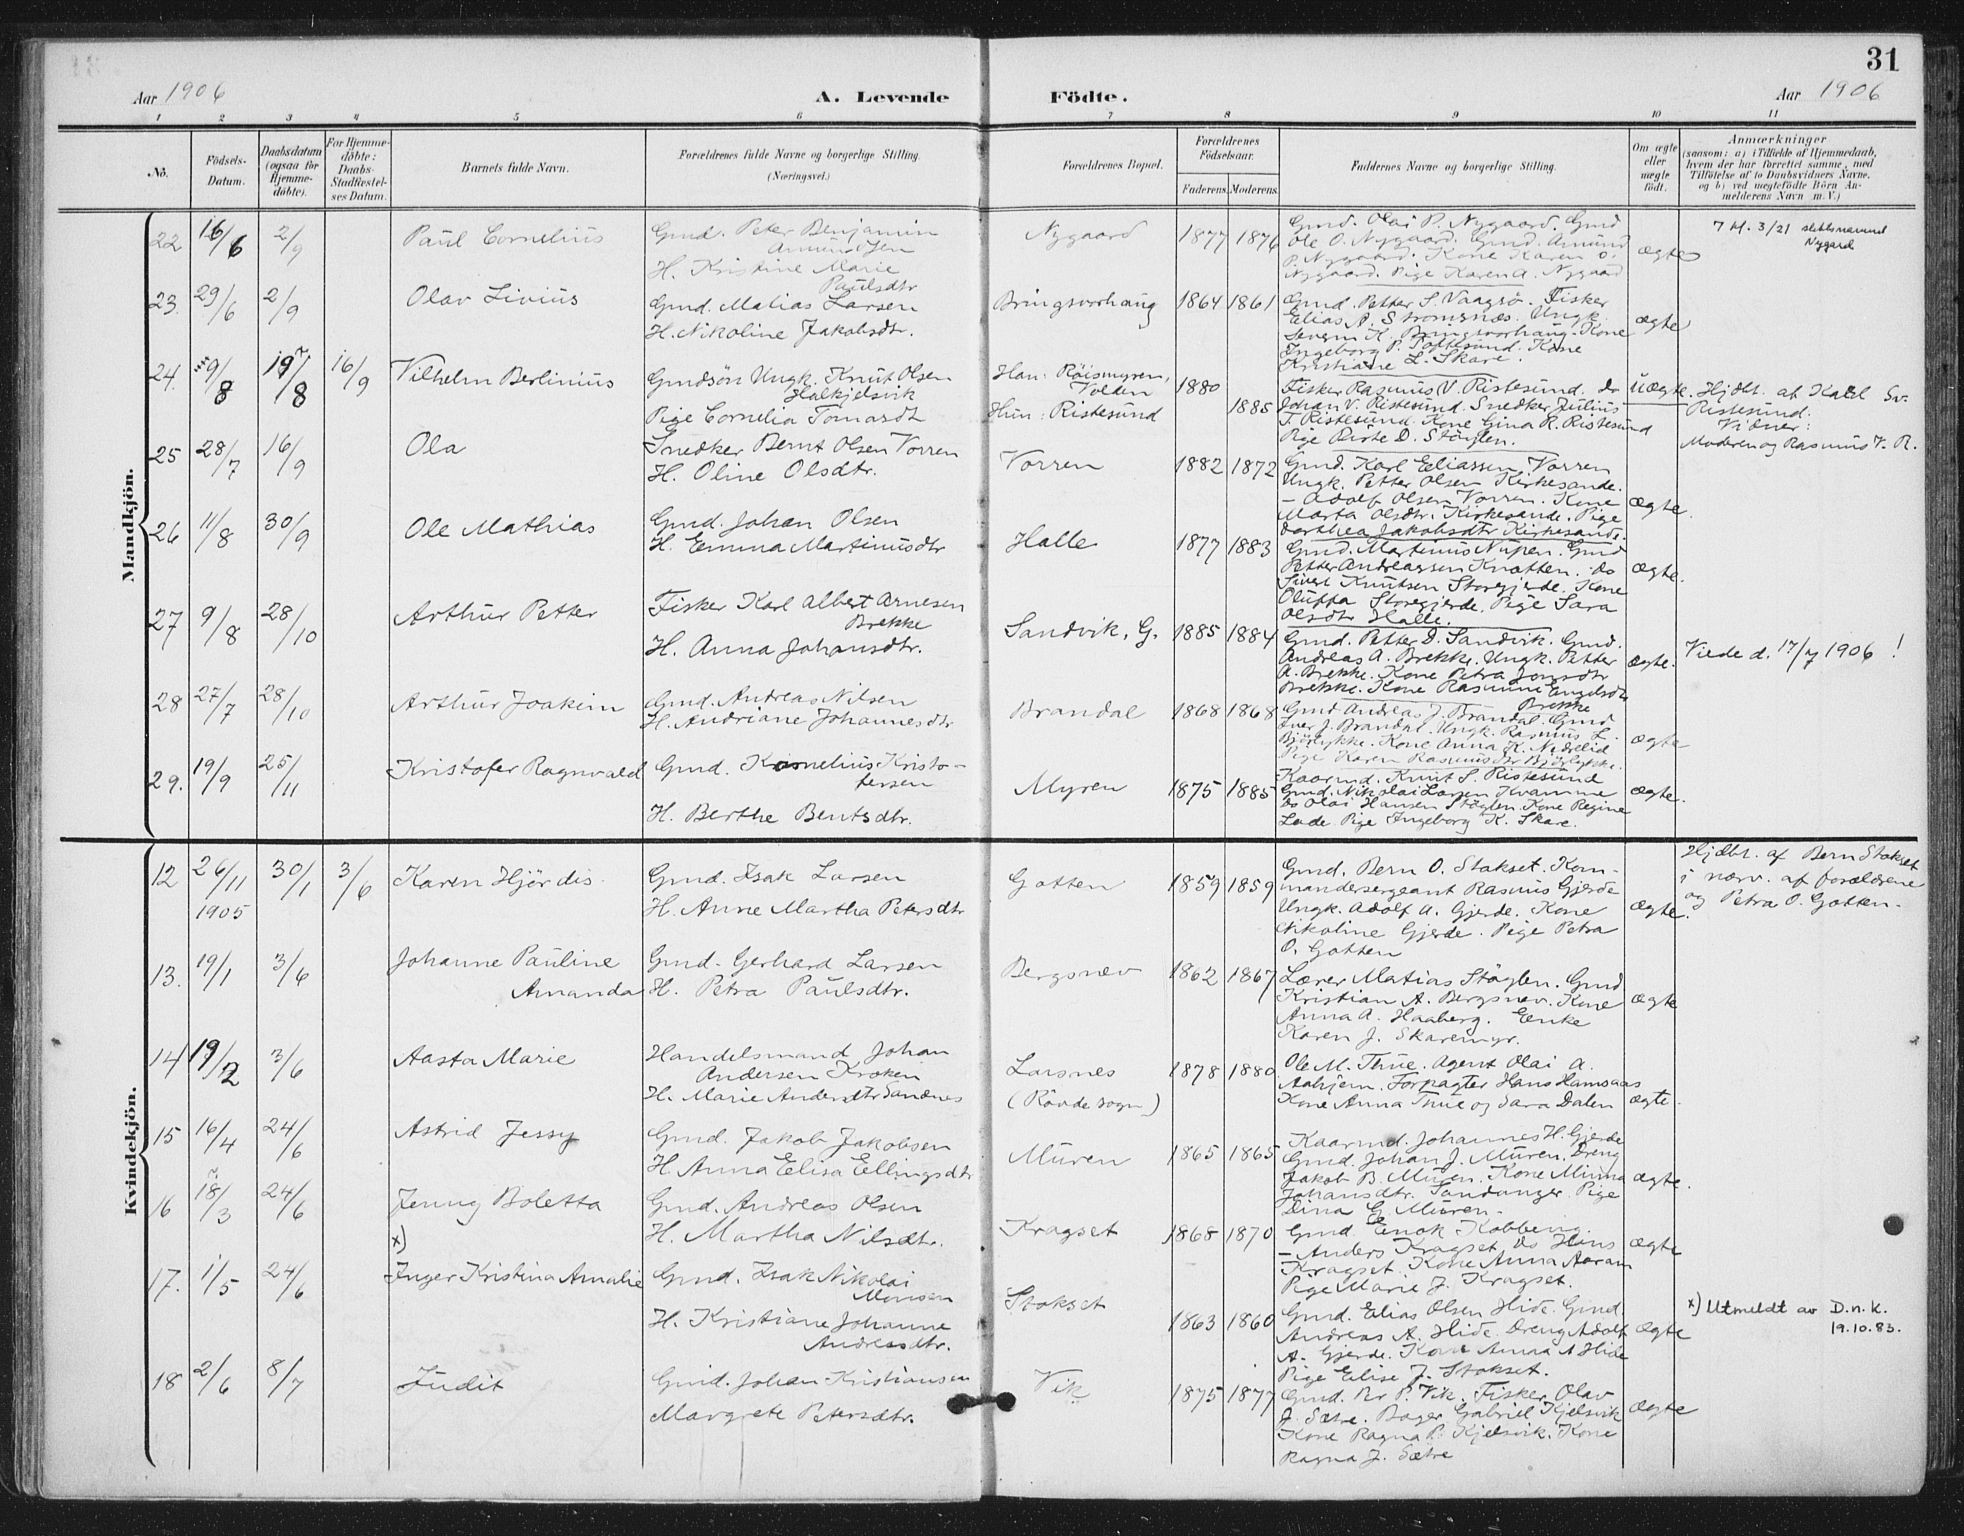 31
Aar 1906
A. Levende
Födte.
Aar 1906
1 2 3 4 5 6 7 8 9 10 11
No.
Födsels-Datum.
Daabsdatum (ogsaa for Hjemmedöbte).
For Hjemmedöbte: Daabs-Stadfæstelses Datum.
Barnets fulde Navn.
Forældrenes fulde Navne og borgerlige Stilling. (Næringsvei.)
Forældrenes Bopæl.
Forældrenes Födselsaar.
Faderens. Moderens.
Faddernes Navne og borgerlige Stilling.
Om ægte eller uægte födt.
Anmærkninger
(saasom: a) i Tilfælde af Hjemmedaab,
hvem der har forrettet samme, med
Tilföielse af to Daabsvidners Navne.
og b) ved uægtefödte Börn An-
melderens Navn m. V.)
Mandkjön.
22 16/6 2/9 Paul Cornelius
Gmd. Peter Benjamin
Amundsen
H. Kristine Marie
Paulsdtr
Nygaard 1877 1876
Gmd. Olai P. Nygaard. Gmd
Ole O. Nygaard. Gmd. Amund
P. Nygaard. Kone Karen O.
Nygaard. Pige Karen A. Nygaard
ægte
7 M. 3/21 slektsnavned
Nygard
23. 29/6 2/9 Olav Livius
Gmd. Matias Larsen
H. Nikoline Jakobsdtr.
Bringsvorhaug 1864 1861
Gmd. Petter S. Vaagsö. Fisker
Elias A. Strømsnes. Ungk.
Severin K. Bringsvorhaug. Kone
Ingeborg P. Pottesund. Kone
Kristiane L. Skare.
ægte
24. 9/8 19/8 16/9 Vilhelm Berlinius
Gmdsön Ungk. Knut Olsen
Holkjelsvik
Pige Cornelia Tomasdt
Han: Röismyren,
Volden
Hun: Ristesund
1880 1885
Fisker Rasmus V. Ristesund. do
Johan V. Ristesund. Snedker Julius
T. Ristesund. Kone Gina R. Ristesund
Pige Birte D. Støylen.
uægte.
Hjdbt. af Karl Sv.
Ristesund.
Vidner:
Moderen og Rasmus V. R.
25 28/7 16/9 Ola
Snedker Bernt Olsen Vorren
H. Oline Olsdtr.
Vorren 1882 1872
Gmd. Karl Eliassen Vorren
Ungk. Petter Olsen Kirkesande.
- Adolf Olsen Vorren. Kone
Marta Olsdtr. Kirkesande. Pige
Dorthea Jakobsdtr Kirkesande.
ægte.
26 11/8 30/9 Ole Mathias
Gmd. Johan Olsen
H. Emma Martinusdtr
Halle 1877 1883
Gmd. Martinus Nupen. Gmd
Petter Andreassen Knotten. do
Sivert Knutsen Storgjerde. Kone
Oluffa Storegjerde. Pige Sara
Olsdtr Halle.
ægte.
27 9/8 28/10 Arthur Petter
Fisker Karl Albert Arnesen
Brekke
H. Anna Johansdtr.
Sandvik, G. 1885 1884
Gmd. Petter D. Sandvik. Gmd.
Andreas A. Brekke. Ungk. Petter
A. Brekke. Kone Petra Jonsdtr
Brekke. Kone Rasmine Engelsdtr
Brekke
ægte.
Viede d. 17/7 1906 !
28 27/7 28/10 Arthur Joakim
Gmd. Andreas Nilsen
H. Andriane Johannesdtr
Brandal 1868 1868
Gmd Andreas J. Brandal. Gmd
Iver J. Brandal. Ungk. Rasmus L.
Bjørlykke. Kone Anna K. Nedrelid
Pige Karen Rasmusdtr Bjørlykke.
ægte
29. 19/9 25/11 Kristofer Ragnvald
Gmd. Kornelius Kristo-
fersen
H. Berthe Bentsdtr.
Myren 1875 1885
Kaarmd. Knut S. Ristesund
Gmd. Nikolai Larsen Kvamme
do Olai Hansen Støylen. Kone Regine
Lade. Pige Ingeborg K. Skare.
ægte.
Kvindekjön.
12 26/11 1905 30/1 3/6 Karen Hjördis.
Gmd. Isak Larsen
H. Anne Martha Petersdtr
Gotten 1859 1859
Gmd. Bern O. Stokset. Kom-
mandersergeant Rasmus Gjerde
Ungk. Adolf A. Gjerde. Kone
Nikoline Gjerde. Pige Petra
O. Gotten
ægte.
Hjdbt. af Bern Stokset
i nærv. af forældrene
og Petra O. Gotten.
13. 19/1 3/6 Johanne Pauline
Amanda
Gmd. Gerhard Larsen
H. Petra Paulsdtr.
Bergsnev 1862 1867
Lærer Matias Støylen. Gmd
Kristian A. Bergsnev. Kone
Anna A. Haaberg. Enke
Karen J. Skaremyr.
ægte
14 19/2 3/6 Aasta Marie
Handelsmand Johan
Andersen Kroken
H. Marie Andersdtr Sandnes
Larsnes
(Rövde sogn)
1878 1880
Ole M. Thue. Agent Olai A.
Aahjem. Forpagter Hans Hamsaas
Kone Anna Thue og Sara Dalen
ægte.
15 16/4 24/6 Astrid Jessy
Gmd. Jakob Jakobsen
H. Anna Elisa Ellingsdtr
Muren 1865 1865
Kaarmd. Johannes H. Gjerde
Gmd. Johan J. Muren. Dreng
Jakob B. Muren. Kone Minna
Johansdtr. Sandanger. Pige
Dina E. Muren.
ægte.
16 18/3 24/6 Jenny Boletta
x)
Gmd. Andreas Olsen
H. Martha Nilsdtr.
Kragset 1868 1870
Gmd. Enok Kobberig.
- Anders Kragset. do Hans
Kragset. Kone Anna Aaram
Pige Marie J. Kragset.
ægte
17. 1/5 24/6 Inger Kristina Amalie
Gmd. Isak Nikolai
Monsen
H. Kristiane Johanne
Andreasdtr.
Stokset 1863 1860
Gmd. Elias Olsen Hide. Gmd.
Andreas A. Hide. Dreng Adolf
A. Gjerde. Kone Anna A Hide
Pige Elise J. Stokset.
ægte
x) Utmeldt av D.n.k.
19.10.83.
18 2/6 8/7 Judit
Gmd. Johan Kristiansen
Margrete Petersdtr.
Vik 1875 1877
Gmd. Per P. Vik. Fisker Olav
J. Sætre. Bager Gabriel Kjelsvik
Kone Ragna P. Kjelsvik. Kone
Ragna J. Sætre
ægte